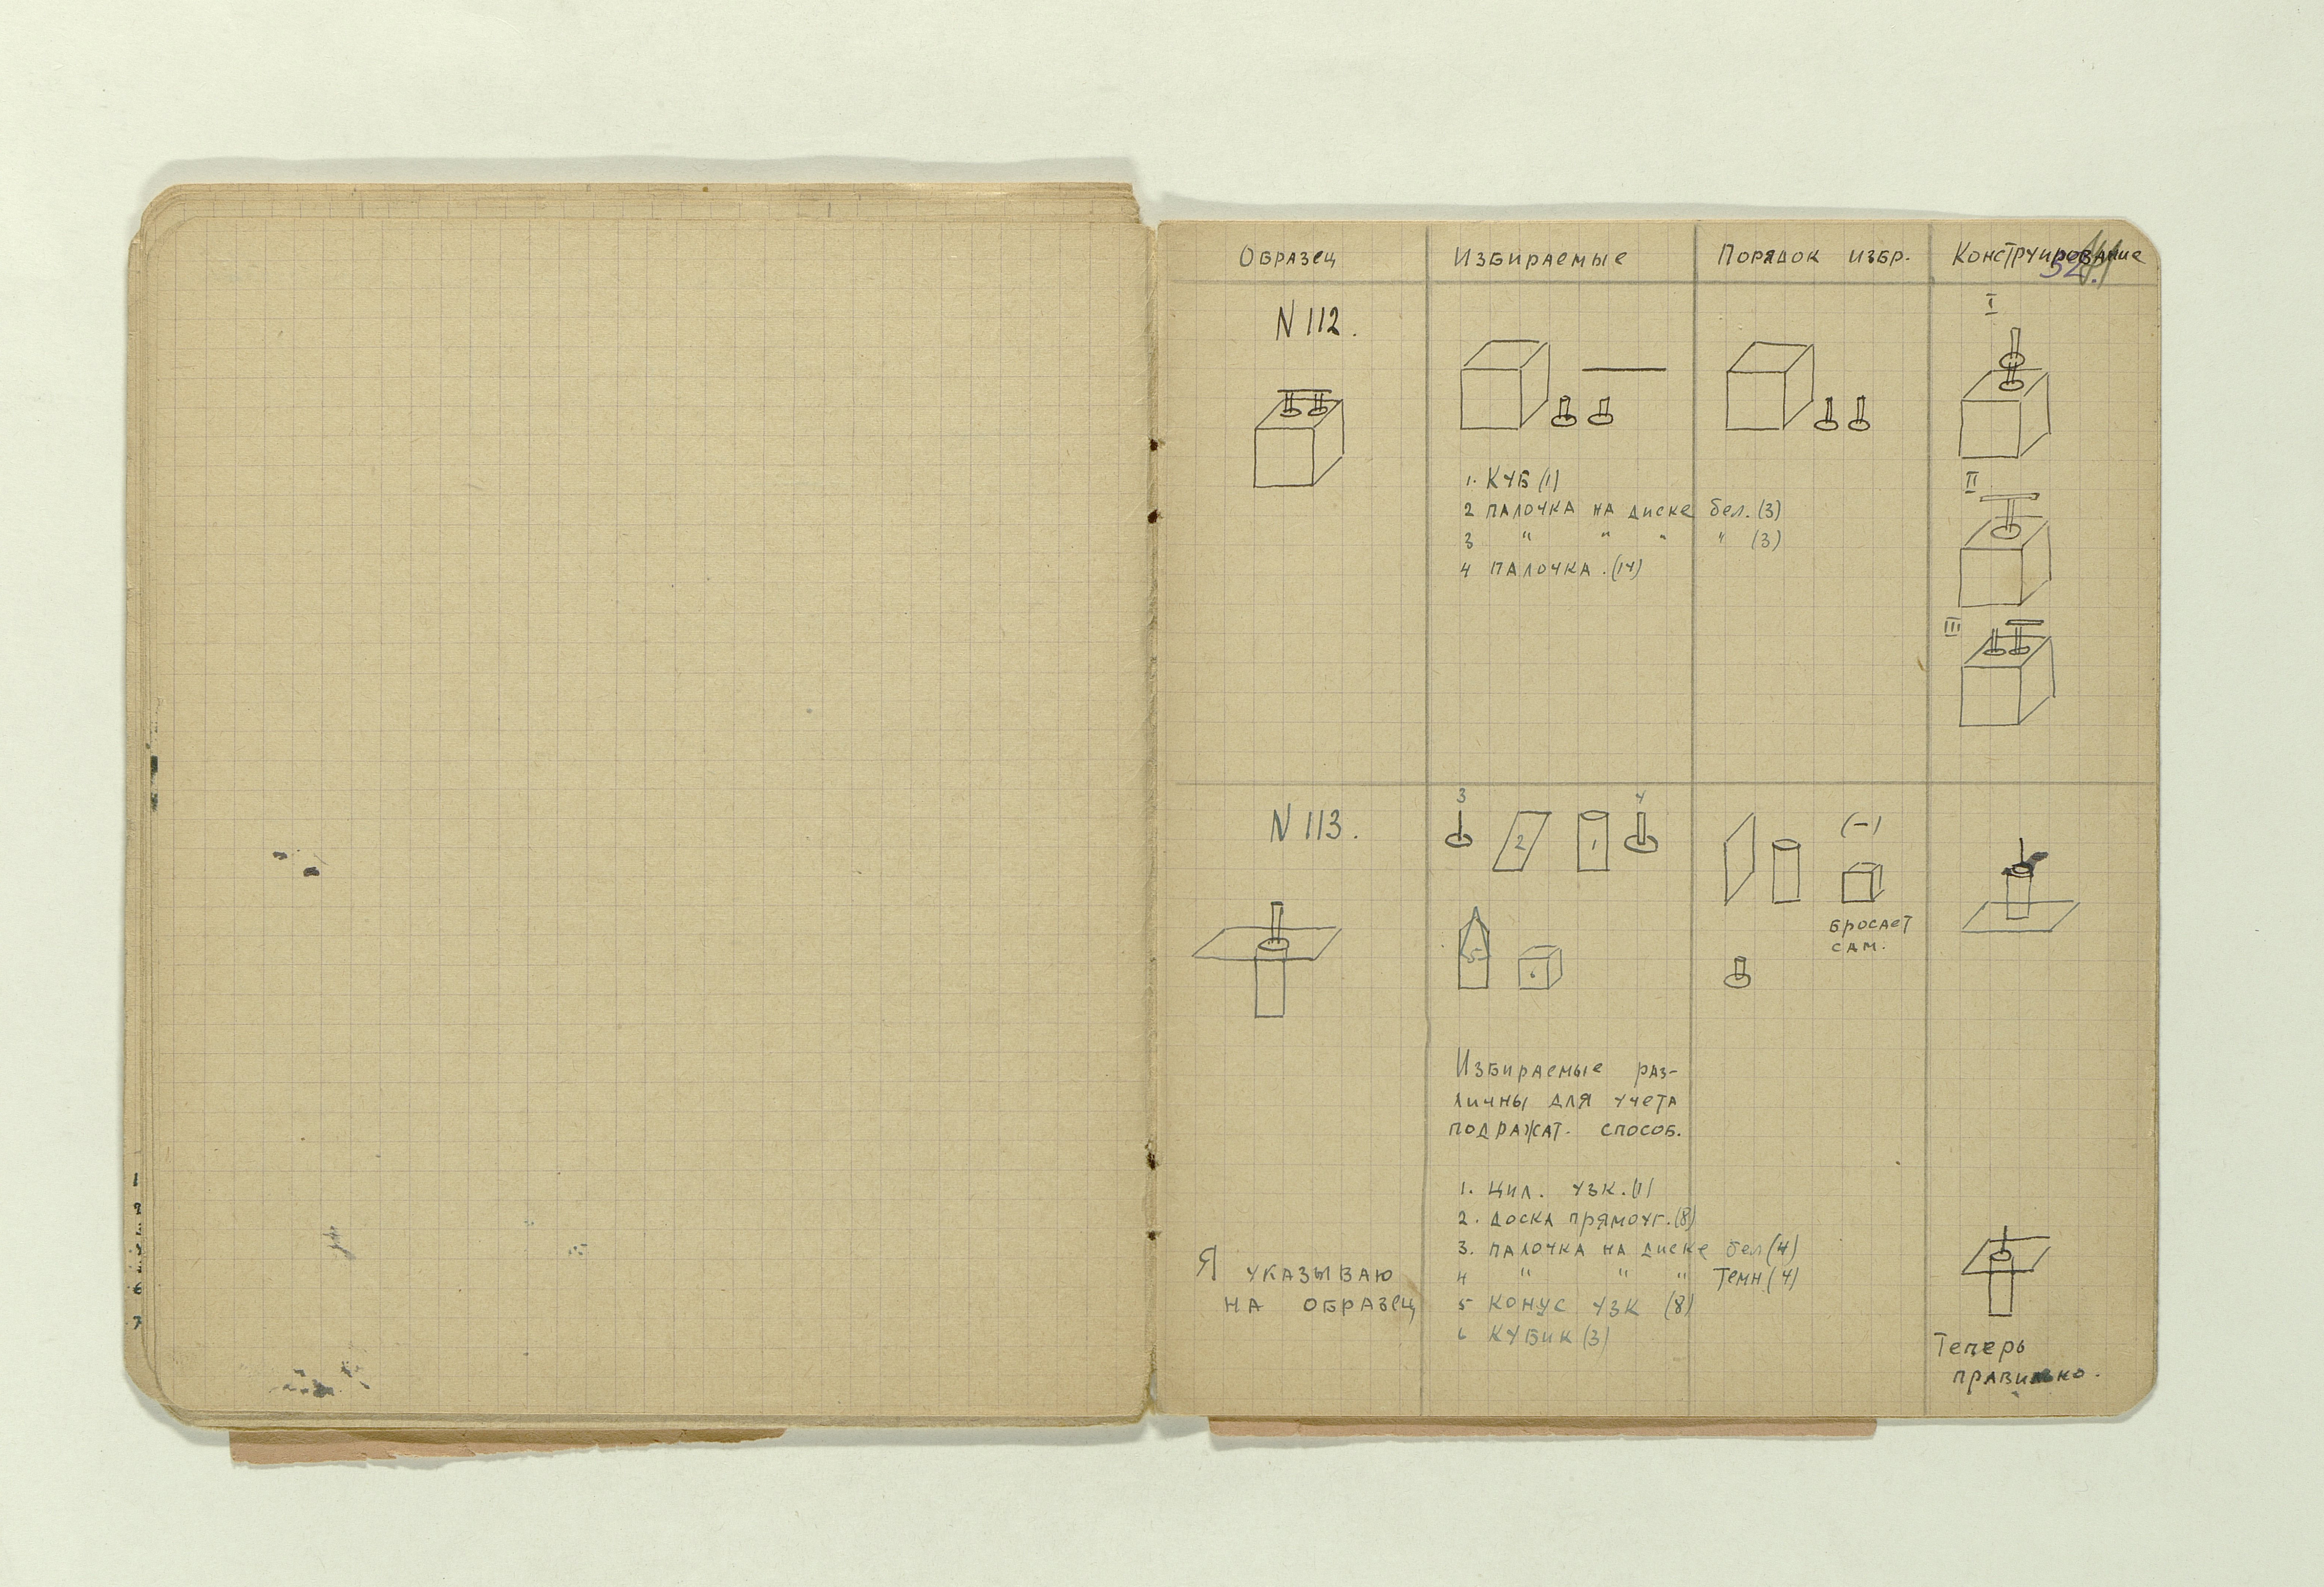 Образец Избираемые Порядок избр. Конструирование
N 112.
I
1. Куб (1)
2 палочка на диске бел. (3)
3 " " " " (3)
4 палочка. (14)
II
III
N 113.
3 2 1 4
(-)
5 6
бросает
сам.
Избираемые раз-
личны для учета
подражат. способ.
1. цил. узк. (1)
2. доска прямоуг. (8)
3. палочка на диске бел (4)
4 " " " темн (4)
5 конус узк (8)
6 кубик (3)
Я указываю
на образец
Теперь
правильно.